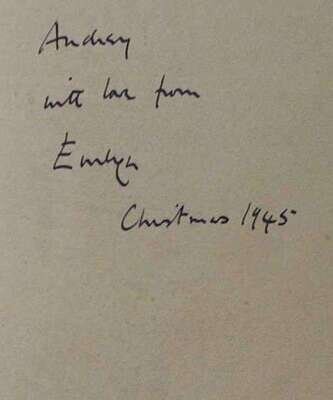 Audrey
with love from
Emlyn
Christmas 1945